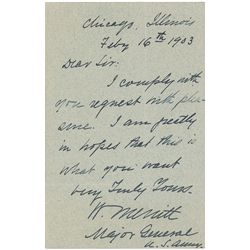 Chicago, Illinois
Feby 16th 1903
Dear Sir:
I comply with
you request with plea-
sure. I am greatly
in hopes that this is
what you want
Very Truly Yours.
W. Merritt
Major General
U.S. Army.